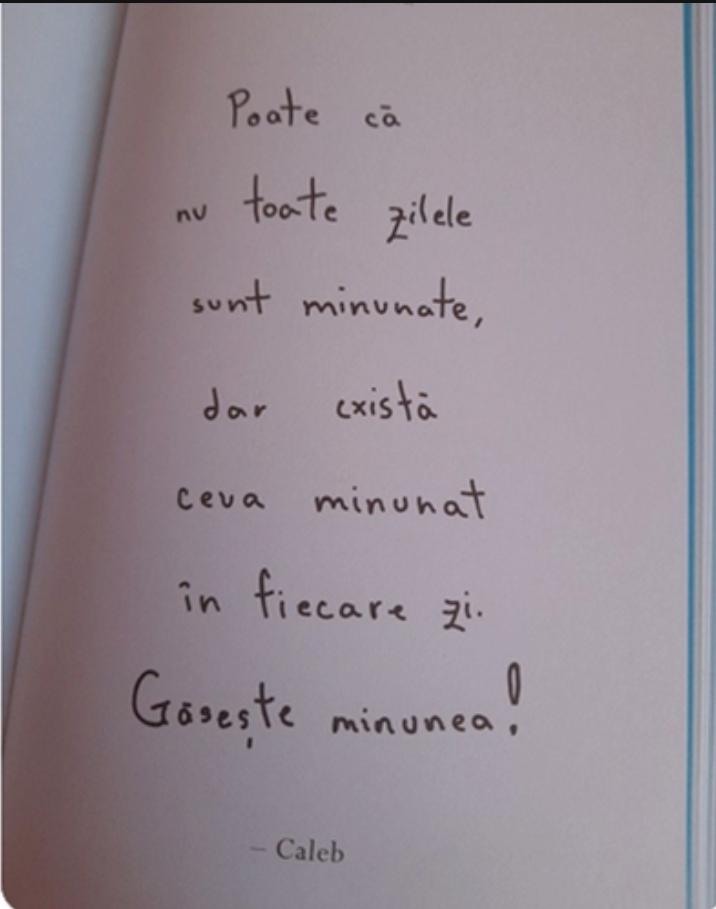 Poate că
nu toate zilele
sunt minunate,
dar există
ceva minunat
în fiecare zi.
Găsește minunea!
– Caleb